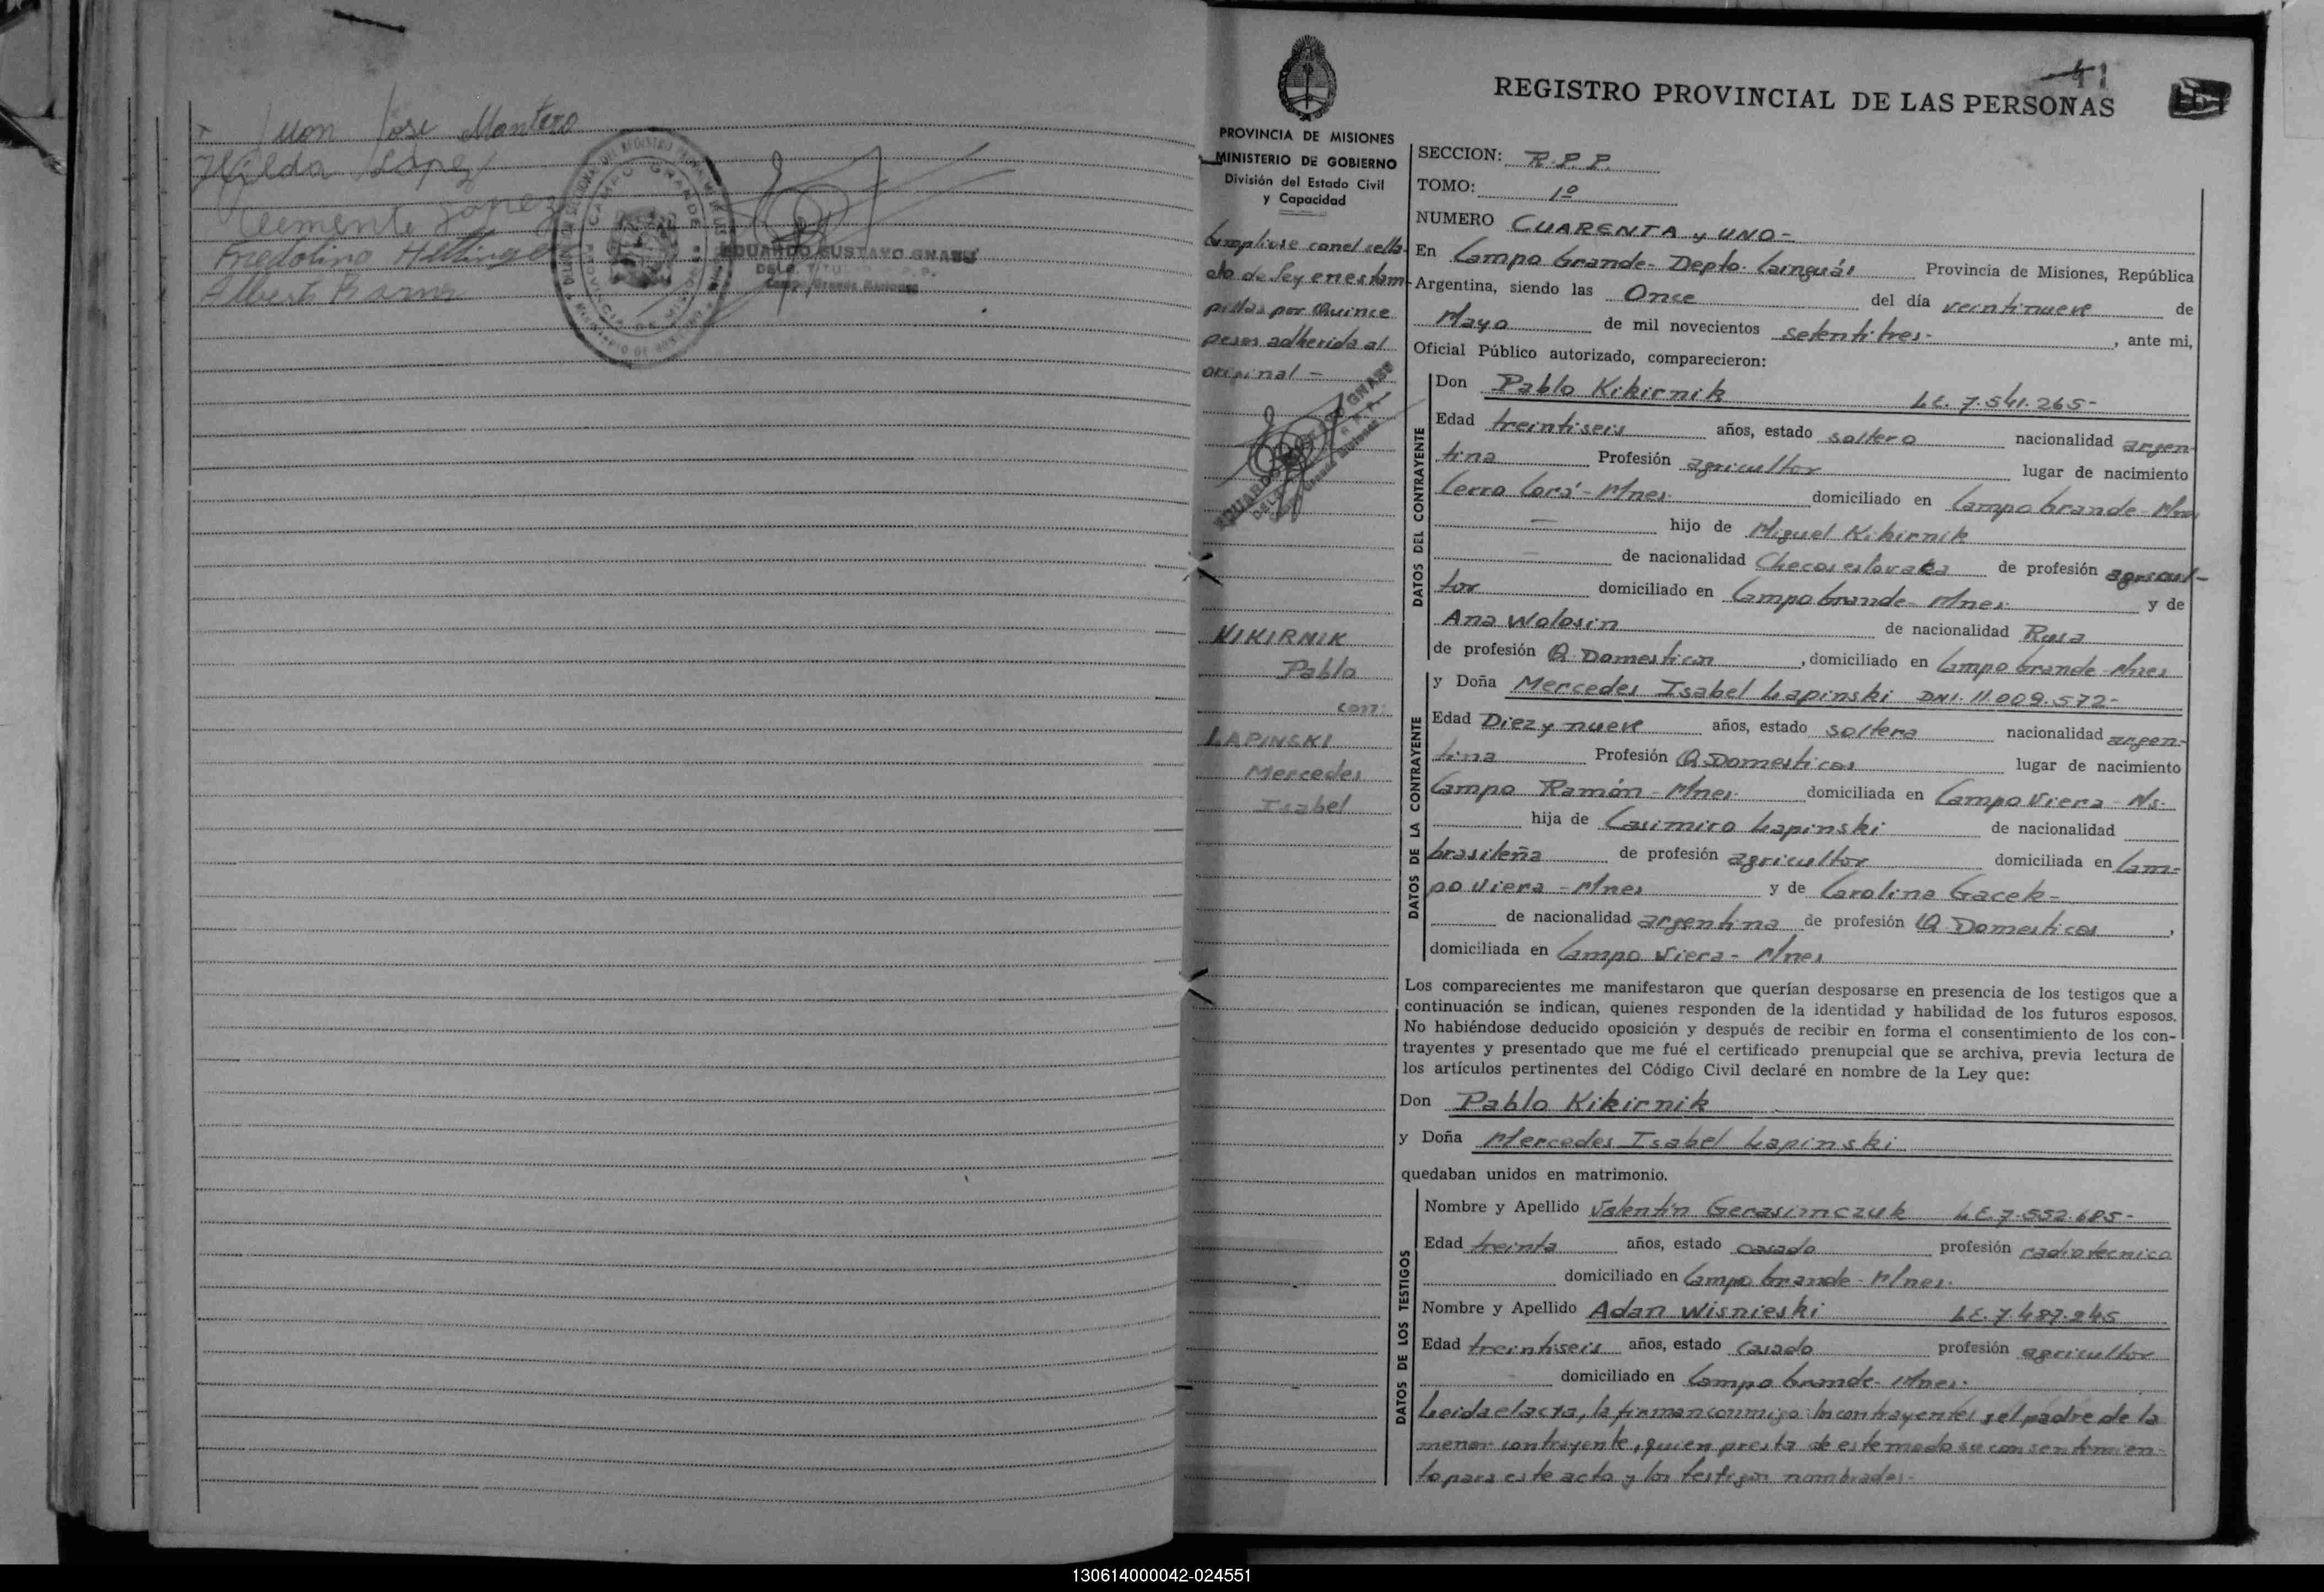 Juan Jose Montero
Hilda Lopez
Clemente Lopez
Fredolino
Albert
CAMPO GRANDE
EDUARDO GUSTAVO GNASS
Campo Grande Misiones
41
REGISTRO PROVINCIAL DE LAS PERSONAS
PROVINCIA DE MISIONES
MINISTERIO DE GOBIERNO
División del Estado Civil
y Capacidad
Cumpliose con el sella-
do de ley en estam-
pillas por Quince
pesos adherida al
original -
KIKIRNIK
Pablo
con:
LAPINSKI
Mercedes
Isabel
SECCION: R.P.P.
TOMO: 1º
NUMERO CUARENTA y UNO-
En Campo Grande- Depto. Cainguás Provincia de Misiones, República
Argentina, siendo las Once del día veintinueve de
Mayo de mil novecientos setentitres- , ante mi,
Oficial Público autorizado, comparecieron:
DATOS DEL CONTRAYENTE
Don Pablo Kikirnik L.E. 7.541.265-
Edad treintiseis años, estado soltero nacionalidad argen-
tina Profesión agricultor lugar de nacimiento
Cerro Corá - Mnes. domiciliado en Campo Grande- Mnes
— hijo de Miguel Kikirnik
— de nacionalidad Checoseslovaka de profesión agricul-
tor domiciliado en Campo Grande- Mnes. y de
Ana Wolosin de nacionalidad Rusa
de profesión Q. Domesticos , domiciliado en Campo Grande- Mnes
DATOS DE LA CONTRAYENTE
y Doña Mercedes Isabel Lapinski DNI. 11.009.572-
Edad Diez y nueve años, estado soltera nacionalidad argen-
tina Profesión Q. Domesticos lugar de nacimiento
Campo Ramón - Mnes. domiciliada en Campo Viera - Ms.
hija de Casimiro Lapinski de nacionalidad
brasileña de profesión agricultor domiciliada en Cam-
po Viera - Mnes y de Carolina Gacek-
de nacionalidad argentina de profesión Q. Domesticos ,
domiciliada en Campo Viera- Mnes
Los comparecientes me manifestaron que querían desposarse en presencia de los testigos que a
continuación se indican, quienes responden de la identidad y habilidad de los futuros esposos.
No habiéndose deducido oposición y después de recibir en forma el consentimiento de los con-
trayentes y presentado que me fué el certificado prenupcial que se archiva, previa lectura de
los artículos pertinentes del Código Civil declaré en nombre de la Ley que:
Don Pablo Kikirnik
y Doña Mercedes Isabel Lapinski
quedaban unidos en matrimonio.
DATOS DE LOS TESTIGOS
Nombre y Apellido Valentín Gerasimczuk L.E. 7.552.685-
Edad treinta años, estado casado profesión radiotecnico
domiciliado en Campo Grande- Mnes.
Nombre y Apellido Adan Wisnieski L.E. 7.487.245
Edad treintiseis años, estado casado profesión agricultor
domiciliado en Campo Grande- Mnes.
Leida el acta, la firman conmigo los contrayentes, el padre de la
menor contrayente, quien presta de este modo su consentimien-
to para este acto y los testigos nombrados-
130614000042-024551